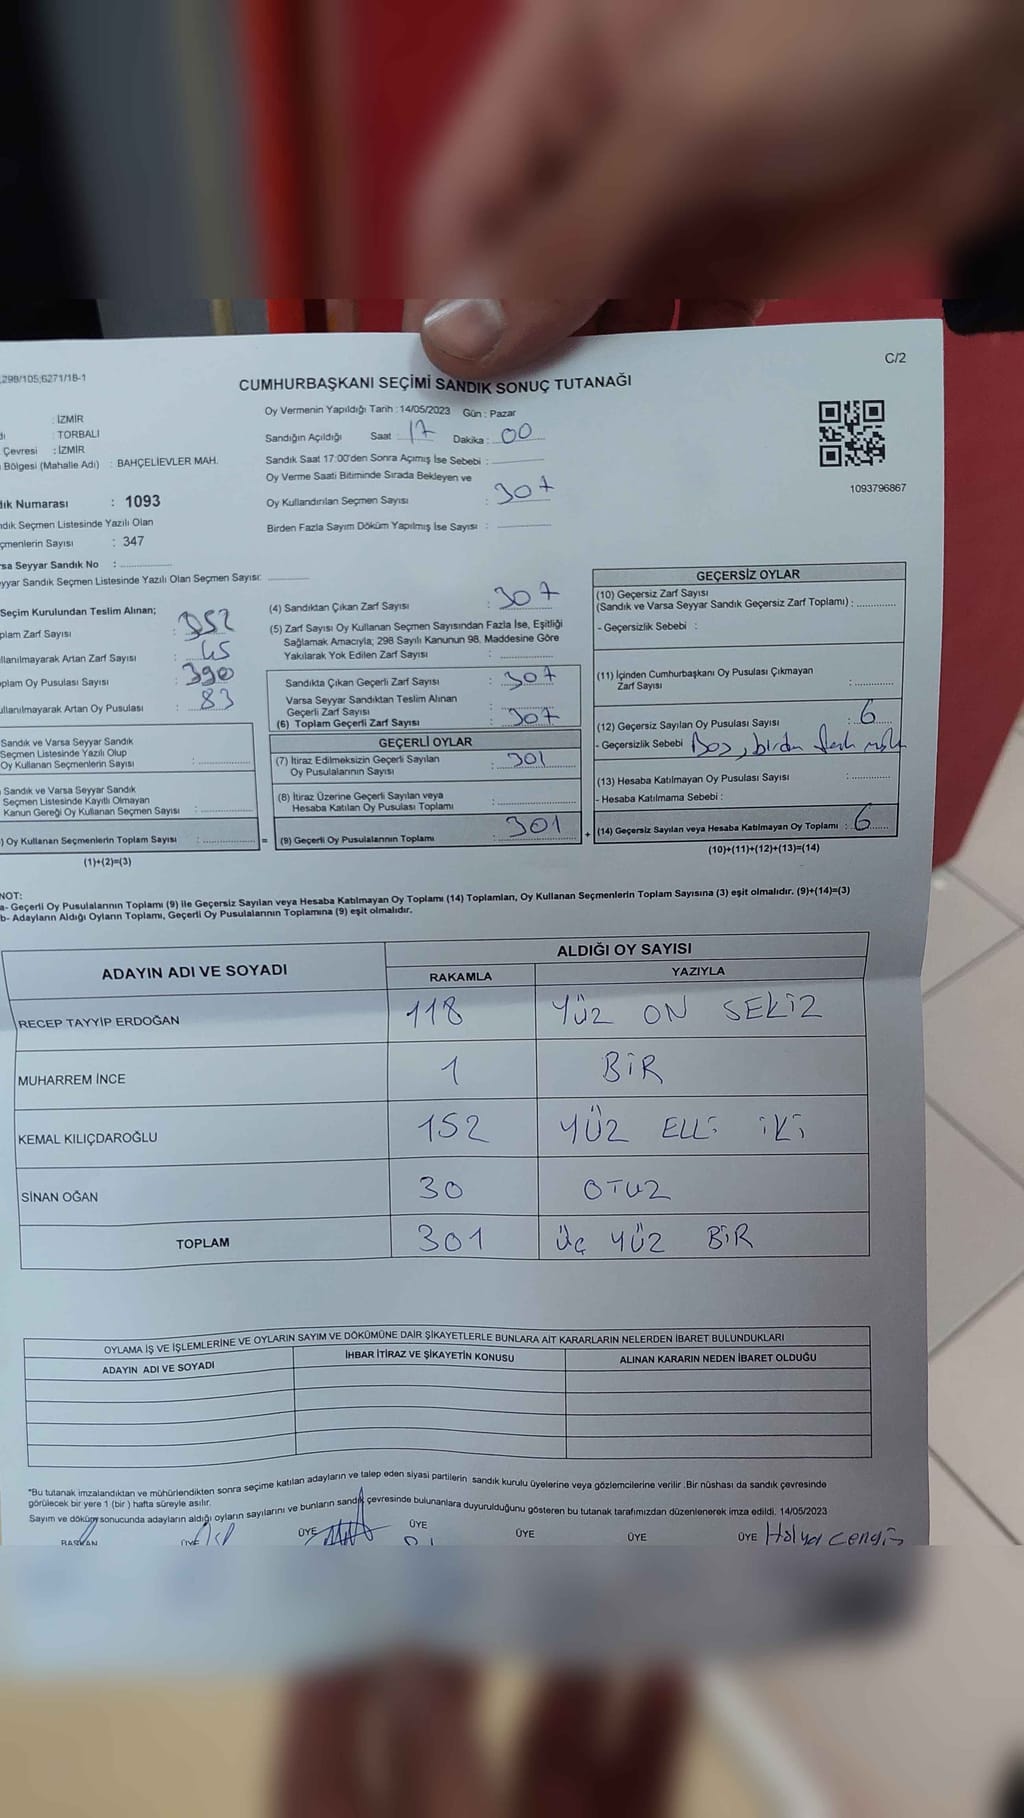 298/105;6271/18-1
C/2
CUMHURBAŞKANI SEÇİMİ SANDIK SONUÇ TUTANAĞI
: İZMİR
: TORBALI
Çevresi : İZMİR
Bölgesi (Mahalle Adı) : BAHÇELİEVLER MAH.
Numarası : 1093
Sandık Seçmen Listesinde Yazılı Olan
Seçmenlerin Sayısı : 347
Varsa Seyyar Sandık No :
Seyyar Sandık Seçmen Listesinde Yazılı Olan Seçmen Sayısı:
Oy Vermenin Yapıldığı Tarih : 14/05/2023 Gün : Pazar
Sandığın Açıldığı Saat : 17 Dakika : 00
Sandık Saat 17:00'den Sonra Açımış İse Sebebi :
Oy Verme Saati Bitiminde Sırada Bekleyen ve
Oy Kullandırılan Seçmen Sayısı : 307
Birden Fazla Sayım Döküm Yapılmış İse Sayısı :
1093796867
Seçim Kurulundan Teslim Alınan;
Zarf Sayısı : 352
Artan Zarf Sayısı : 45
Oy Pusulası Sayısı : 390
Artan Oy Pusulası : 83
Sandık ve Varsa Seyyar Sandık
Seçmen Listesinde Yazılı Olup
Oy Kullanan Seçmenlerin Sayısı :
Sandık ve Varsa Seyyar Sandık
Seçmen Listesinde Kayıtlı Olmayan
Kanun Gereği Oy Kullanan Seçmen Sayısı :
) Oy Kullanan Seçmenlerin Toplam Sayısı :
(1)+(2)=(3)
(4) Sandıktan Çıkan Zarf Sayısı : 307
(5) Zarf Sayısı Oy Kullanan Seçmen Sayısından Fazla İse, Eşitliği
Sağlamak Amacıyla; 298 Sayılı Kanunun 98. Maddesine Göre
Yakılarak Yok Edilen Zarf Sayısı :
Sandıkta Çıkan Geçerli Zarf Sayısı : 307
Varsa Seyyar Sandıktan Teslim Alınan
Geçerli Zarf Sayısı
(6) Toplam Geçerli Zarf Sayısı : 307
GEÇERLİ OYLAR
(7) İtiraz Edilmeksizin Geçerli Sayılan
Oy Pusulalarının Sayısı : 301
(8) İtiraz Üzerine Geçerli Sayılan veya
Hesaba Katılan Oy Pusulası Toplamı :
= (9) Geçerli Oy Pusulalarının Toplamı : 301
GEÇERSİZ OYLAR
(10) Geçersiz Zarf Sayısı
(Sandık ve Varsa Seyyar Sandık Geçersiz Zarf Toplamı) :
- Geçersizlik Sebebi :
(11) İçinden Cumhurbaşkanı Oy Pusulası Çıkmayan
Zarf Sayısı :
(12) Geçersiz Sayılan Oy Pusulası Sayısı : 6
- Geçersizlik Sebebi Boş, birden fazla
(13) Hesaba Katılmayan Oy Pusulası Sayısı :
- Hesaba Katılmama Sebebi :
+ (14) Geçersiz Sayılan veya Hesaba Katılmayan Oy Toplamı : 6
(10)+(11)+(12)+(13)=(14)
NOT:
a- Geçerli Oy Pusulalarının Toplamı (9) ile Geçersiz Sayılan veya Hesaba Katılmayan Oy Toplamı (14) Toplamları, Oy Kullanan Seçmenlerin Toplam Sayısına (3) eşit olmalıdır. (9)+(14)=(3)
b- Adayların Aldığı Oyların Toplamı, Geçerli Oy Pusulalarının Toplamına (9) eşit olmalıdır.
ADAYIN ADI VE SOYADI
ALDIĞI OY SAYISI
RAKAMLA YAZIYLA
RECEP TAYYİP ERDOĞAN 118 YÜZ ON SEKİZ
MUHARREM İNCE 1 BİR
KEMAL KILIÇDAROĞLU 152 YÜZ ELLİ İKİ
SİNAN OĞAN 30 OTUZ
TOPLAM 301 ÜÇ YÜZ BİR
OYLAMA İŞ VE İŞLEMLERİNE VE OYLARIN SAYIM VE DÖKÜMÜNE DAİR ŞİKAYETLERLE BUNLARA AİT KARARLARIN NELERDEN İBARET BULUNDUKLARI
ADAYIN ADI VE SOYADI İHBAR İTİRAZ VE ŞİKAYETİN KONUSU ALINAN KARARIN NEDEN İBARET OLDUĞU
*Bu tutanak imzalandıktan ve mühürlendikten sonra seçime katılan adayların ve talep eden siyasi partilerin sandık kurulu üyelerine veya gözlemcilerine verilir .Bir nüshası da sandık çevresinde
görülecek bir yere 1 (bir ) hafta süreyle asılır.
Sayım ve döküm sonucunda adayların aldığı oyların sayılarını ve bunların sandık çevresinde bulunanlara duyurulduğunu gösteren bu tutanak tarafımızdan düzenlenerek imza edildi. 14/05/2023
BAŞKAN ÜYE ÜYE ÜYE ÜYE ÜYE ÜYE Hülya Cengiz